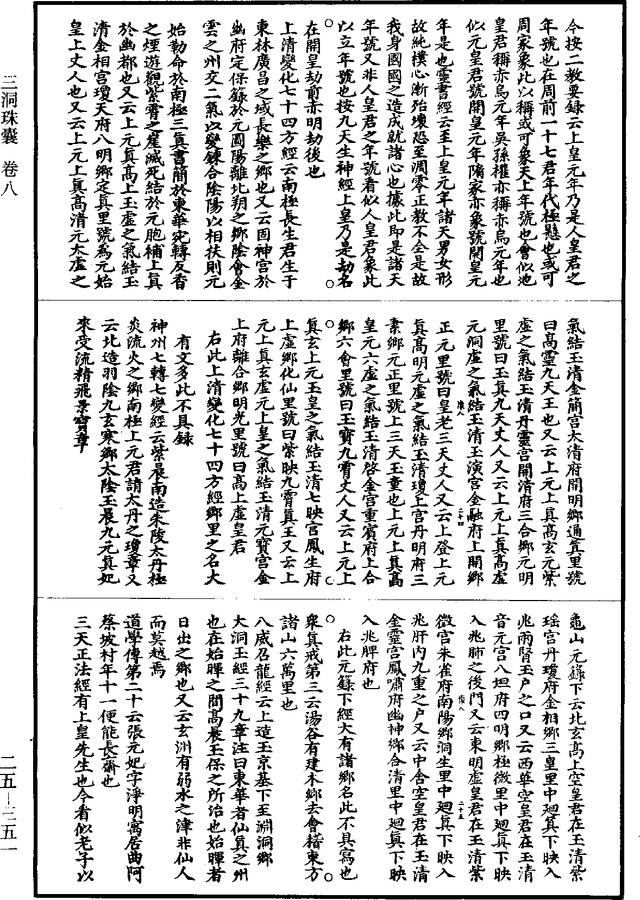 三洞珠囊 卷八
二五—三五一
今按二教要録云上皇元年乃是人皇君之
年號也在周前一十七君年代極懸也或可
周家象此以稱或可象天上年號也會似池
皇君稱赤烏元年吳孫權亦稱赤烏元年也
似元皇君號開皇元年隋家亦象號開皇元
年是也靈書經云至上皇元年諸天男女形
故純樸心漸殆壞恐至凋零正教不全是故
我身國國之造成就諸心也據此即是諸天
年號又非人皇君之年號看似人皇君象此
以立年號也按九天生神經上皇乃是劫名
在開皇劫前赤明劫後也
上清變化七十四方經云南極長生君生于
東林廣昌之城長樂之鄉也又云固神宮於
幽府定保籙於元圃陽離北朔之鄉陰會金
雲之州交二氣以變鍊合陰陽以相扶則元
始勒命於南極三真書簡於東華宛轉反香
之煙遊觀紫霄之崖滅死結於元胞補上真
於幽都也又云上元真高上玉虛之氣結玉
清金相宮瓊天府八明鄉定真里號爲元始
皇上丈人也又云上元上真高清元太虛之
氣結玉清金簡宮太清府開明鄉通真里號
曰高靈九天王也又云上元上真高玄元紫
虛之氣結玉清丹靈宮開清府三合鄉元明
里號曰玉真九天丈人又云上元上真高虛
元洞虛之氣結玉清玉演宮金融府上開鄉
正元里號曰皇老三天丈人又云上登上元
真高明元虛之氣結玉清瓊上宮丹明府三
素鄉元正里號上三天玉童也上元上真高
皇元六虛之氣結玉清啓金宮重賓府上合
鄉六會里號曰玉寶九霄丈人又云上元上
真玄上元玉皇之氣結玉清七映宮鳳生府
上虛鄉化仙里號曰紫映九霄真王又云上
元上真玄虛元上皇之氣結玉清元寶宮金
上府離合鄉明光里號曰高上虛皇君
右此上清變化七十四方經鄉里之名大
有文多此不具録
神州七轉七變經云紫晨南造朱陵太丹極
炎流火之鄉南極上元君請太丹之瓊章又
云北造羽陰九玄寒鄉太陰玉晨九元真妃
來受流精飛景寶章
龜山元籙下云北玄高上空皇君在玉清紫
瑶宮丹瓊府金相鄉三皇里中廻真下映入
兆兩腎玉户之口又云西華空皇君在玉清
音元宮八坦府四明鄉極微里中廻真下映
入兆肺之後門又云東明虛皇君在玉清紫
微宮朱雀府南陽鄉洞生里中廻真下映入
兆肝内九重之户又云中含空皇君在玉清
金靈宮鳳嘯府幽神鄉合清里中廻真下映
入兆脾府也
右此元籙下經大有諸鄉名此不具寫也
衆真戒第三云湯谷有建木鄉去會稽東方
諸山六萬里也
八威召龍經云上造玉京基下至淵洞鄉
大洞玉經三十九章注曰東華者仙真之州
也在始暉之間高晨玉保之所治也始暉者
日出之鄉也又云玄洲有弱水之津非仙人
而莫越焉
道學傳第二十云張元妃字淨明寓居曲阿
蔡坡村年十一便能長齋也
三天正法經有上皇先生也今看似老子以